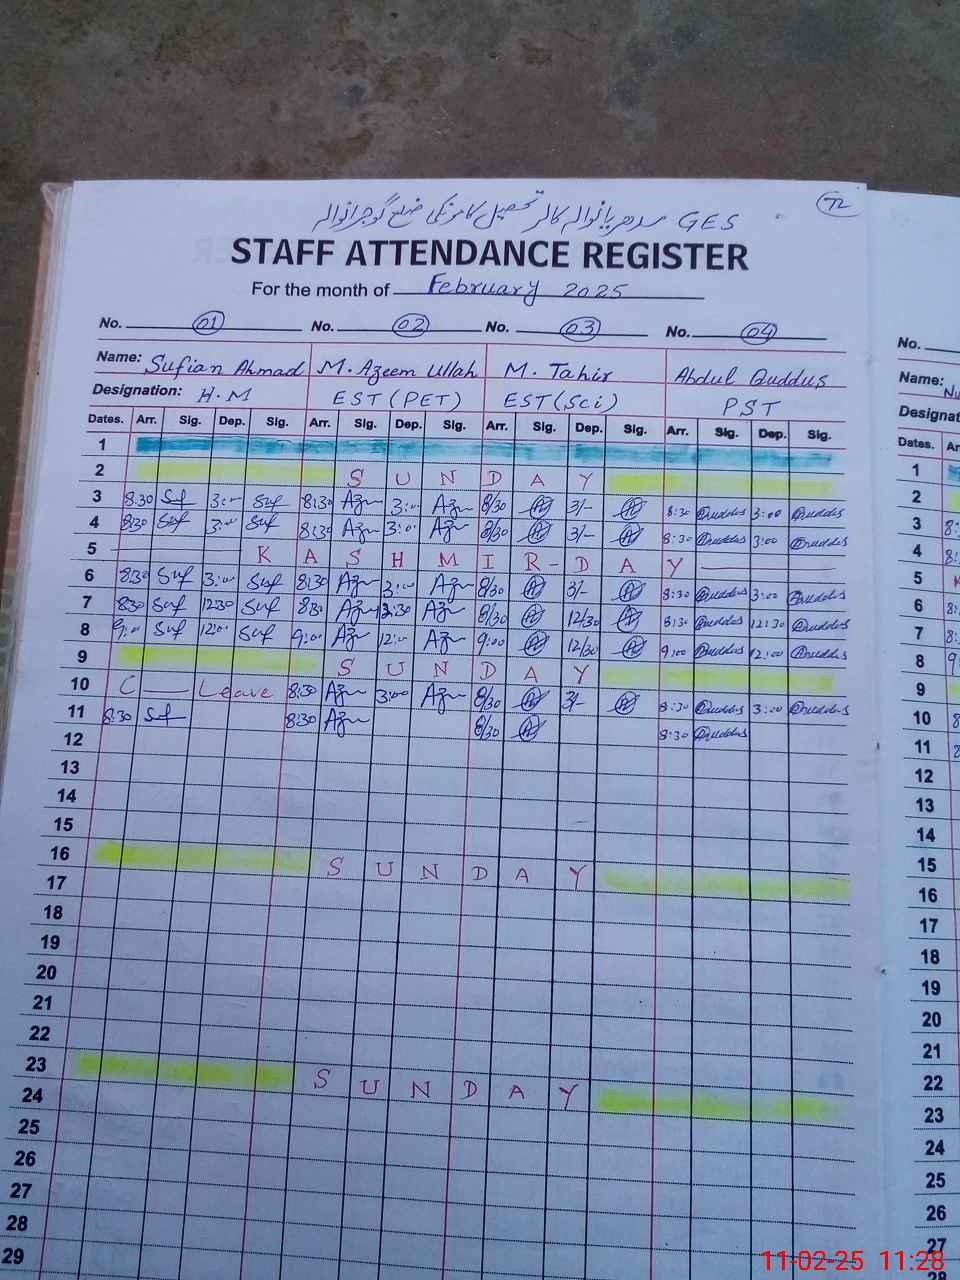 72
GES سدھریانوالہ کالر تحصیل کامونکی ضلع گوجرانوالہ
STAFF ATTENDANCE REGISTER
For the month of February 2025
No. 01 No. 02 No. 03 No. 04
Name: Sufian Ahmad M. Azeem Ullah M. Tahir Abdul Quddus
Designation: H.M EST (PET) EST (Sci) PST
Dates. Arr. Sig. Dep. Sig. Arr. Sig. Dep. Sig. Arr. Sig. Dep. Sig. Arr. Sig. Dep. Sig.
1
2 SUNDAY
3 8:30 Suf 3:00 Suf 8:30 Azm 3:00 Azm 8/30 3/- 8:30 Quddus 3:00 Quddus
4 8:30 Suf 3:00 Suf 8:30 Azm 3:00 Azm 8/30 3/- 8:30 Quddus 3:00 Quddus
5 KASHMIR-DAY
6 8:30 Suf 3:00 Suf 8:30 Azm 3:00 Azm 8/30 3/- 8:30 Quddus 3:00 Quddus
7 8:30 Suf 12:30 Suf 8:30 Azm 12:30 Azm 8/30 12/30 8:30 Quddus 12:30 Quddus
8 9:00 Suf 12:00 Suf 9:00 Azm 12:00 Azm 9:00 12/30 9:00 Quddus 12:00 Quddus
9 SUNDAY
10 C — Leave 8:30 Azm 3:00 Azm 8/30 3/- 8:30 Quddus 3:00 Quddus
11 8:30 Suf 8:30 Azm 8/30 8:30 Quddus
12
13
14
15
16 SUNDAY
17
18
19
20
21
22
23 SUNDAY
24
25
26
27
28
29
No.
Name: Nu
Designat
Dates. Ar
1
2
3 8:
4 8:
5 K
6 8:
7 8:
8 9
9
10 8
11 8
12
13
14
15
16
17
18
19
20
21
22
23
24
25
26
27
28
11-02-25 11:28